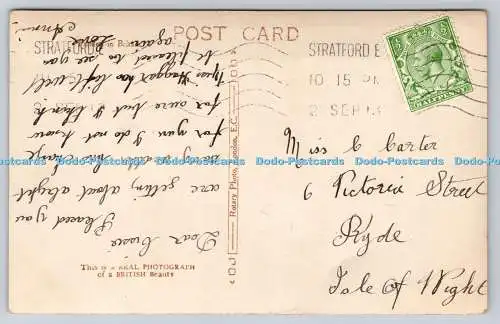 POST CARD
STRATFORD
STRATFORD E
10 15 PM
2 SEP
HALFPENNY
Dear Cissie
Pleased you
are getting about alright
for you I do not know
for sure but I think
Miss Haggar has left well
be pleased to see you
again
Love
Annie
Rotary Photo, London, E.C.
This is a REAL PHOTOGRAPH
of a BRITISH Beauty
Miss C Carter
6 Victoria Street
Ryde
Isle of Wight
Dodo-Postcards Dodo-Postcards Dodo-Postcards Dodo-Postcards Dodo-Postcards